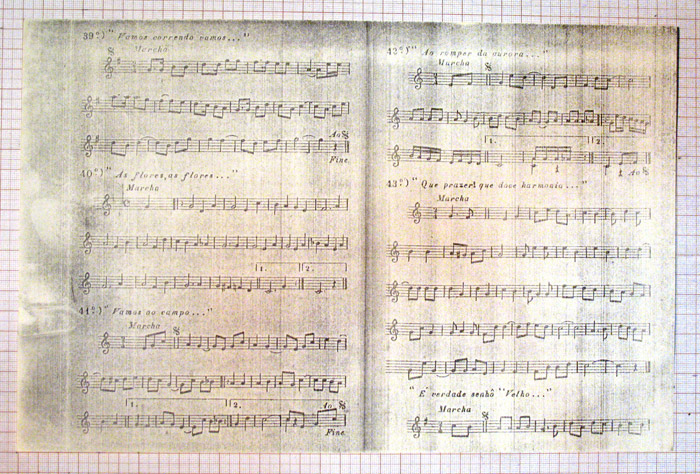 39º) "Vamos correndo vamos..."
Marcha
Ao
Fine.
40º) "As flores, as flores..."
Marcha
1. 2.
41º) "Vamos ao campo..."
Marcha
1. 2. Ao
Fine.
42º) "Ao romper da aurora..."
Marcha
1. 2.
Ao
43º) "Que prazer! que doce harmonia..."
Marcha
"É verdade senhô "Velho..."
Marcha